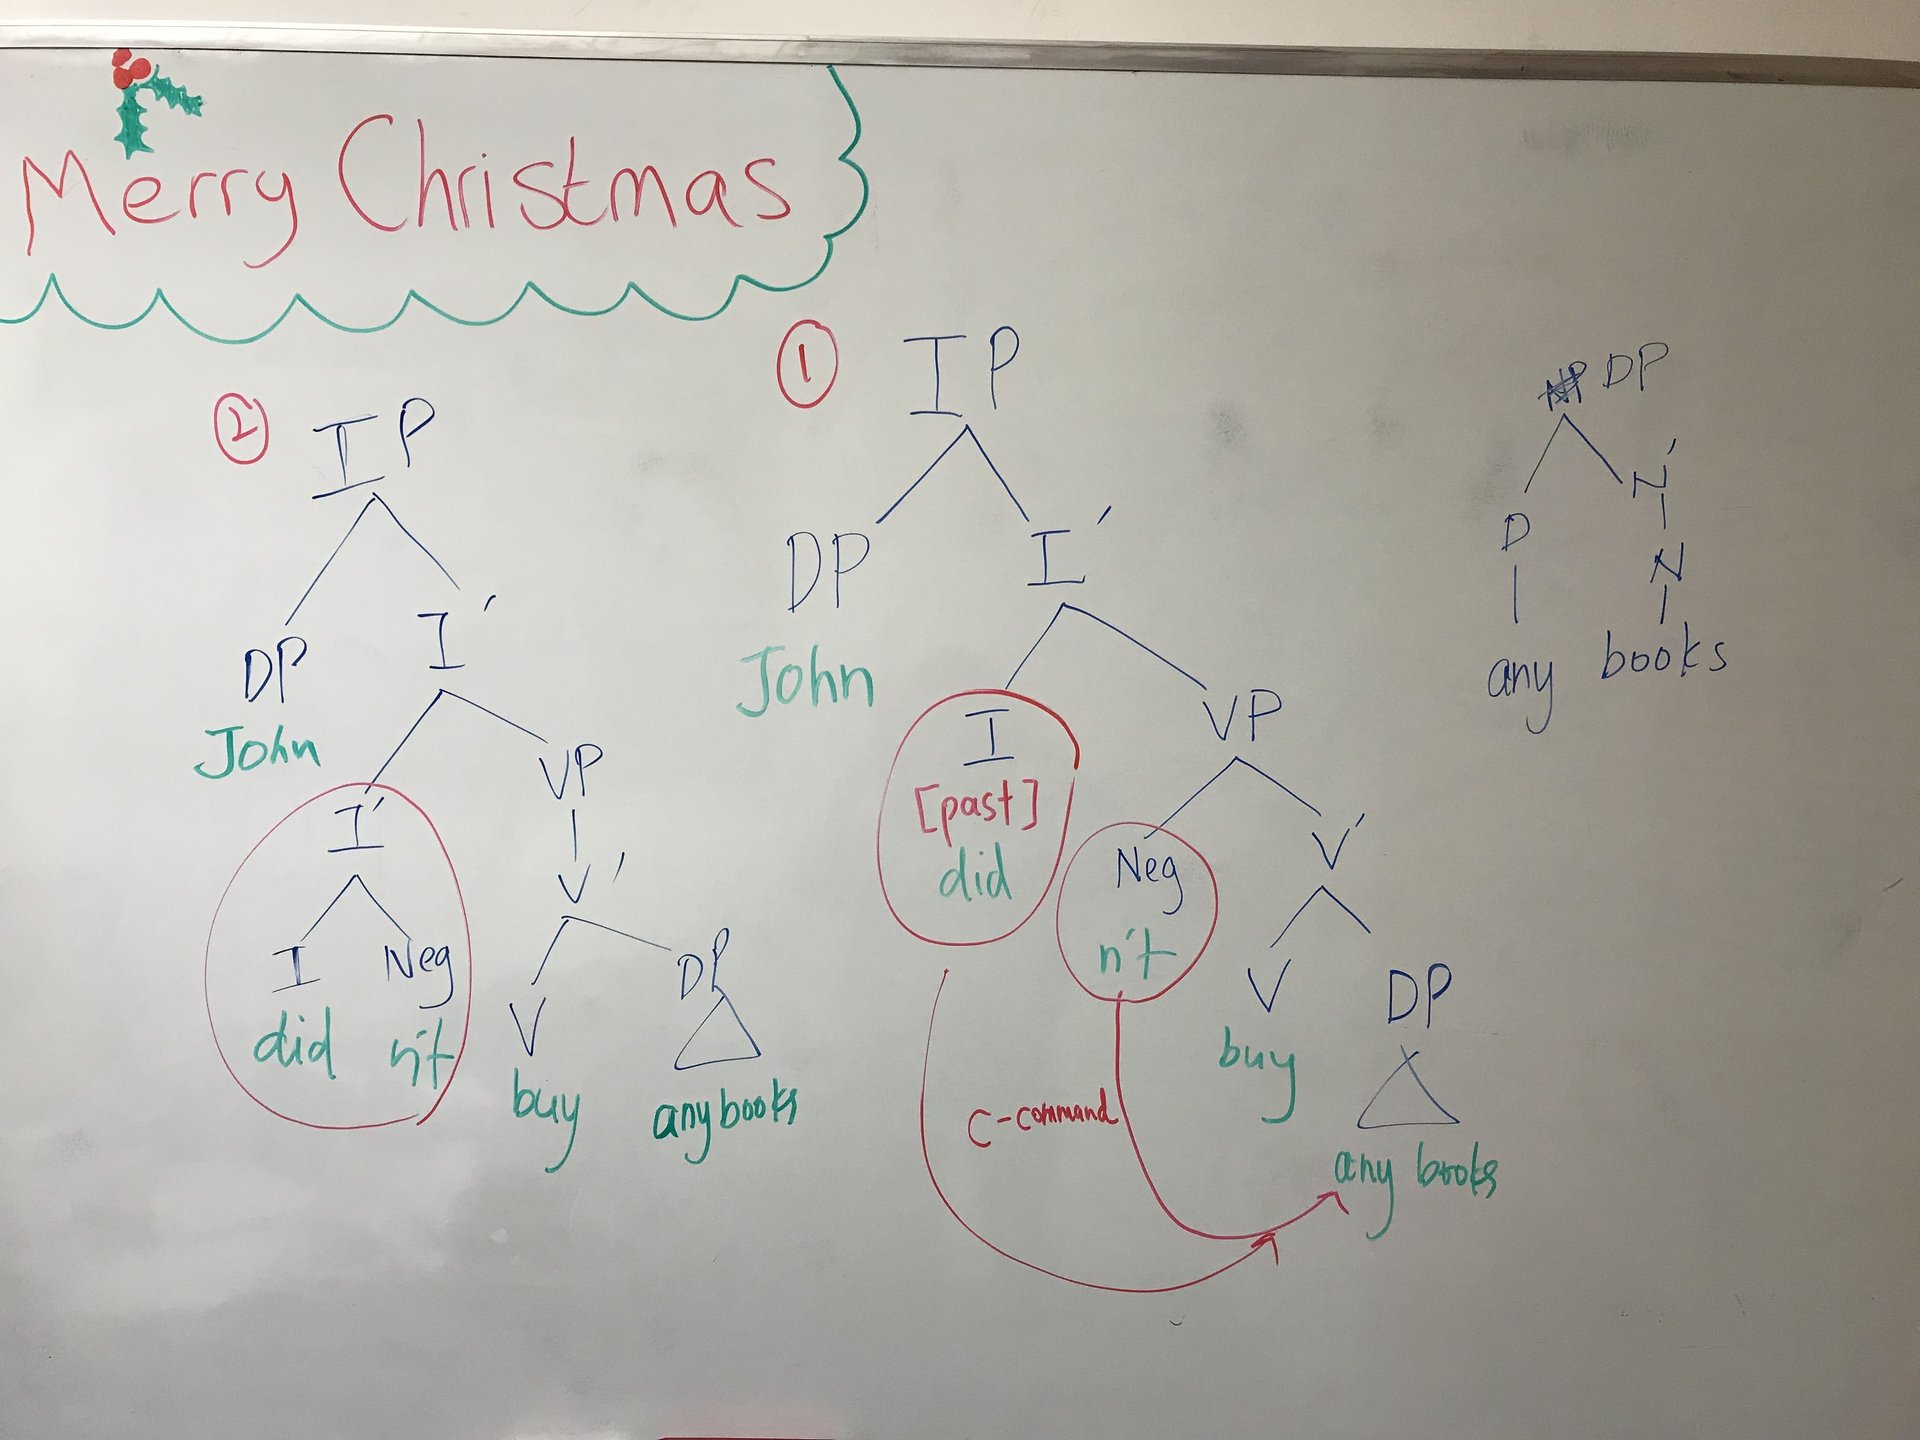 Merry Christmas
② IP
DP I'
John
I' VP
I Neg
did n't
V'
V DP
buy any books
① IP
DP I'
John
I VP
[past]
did
Neg V'
n't
V DP
buy
any books
C-command
DP
D N'
N
any books